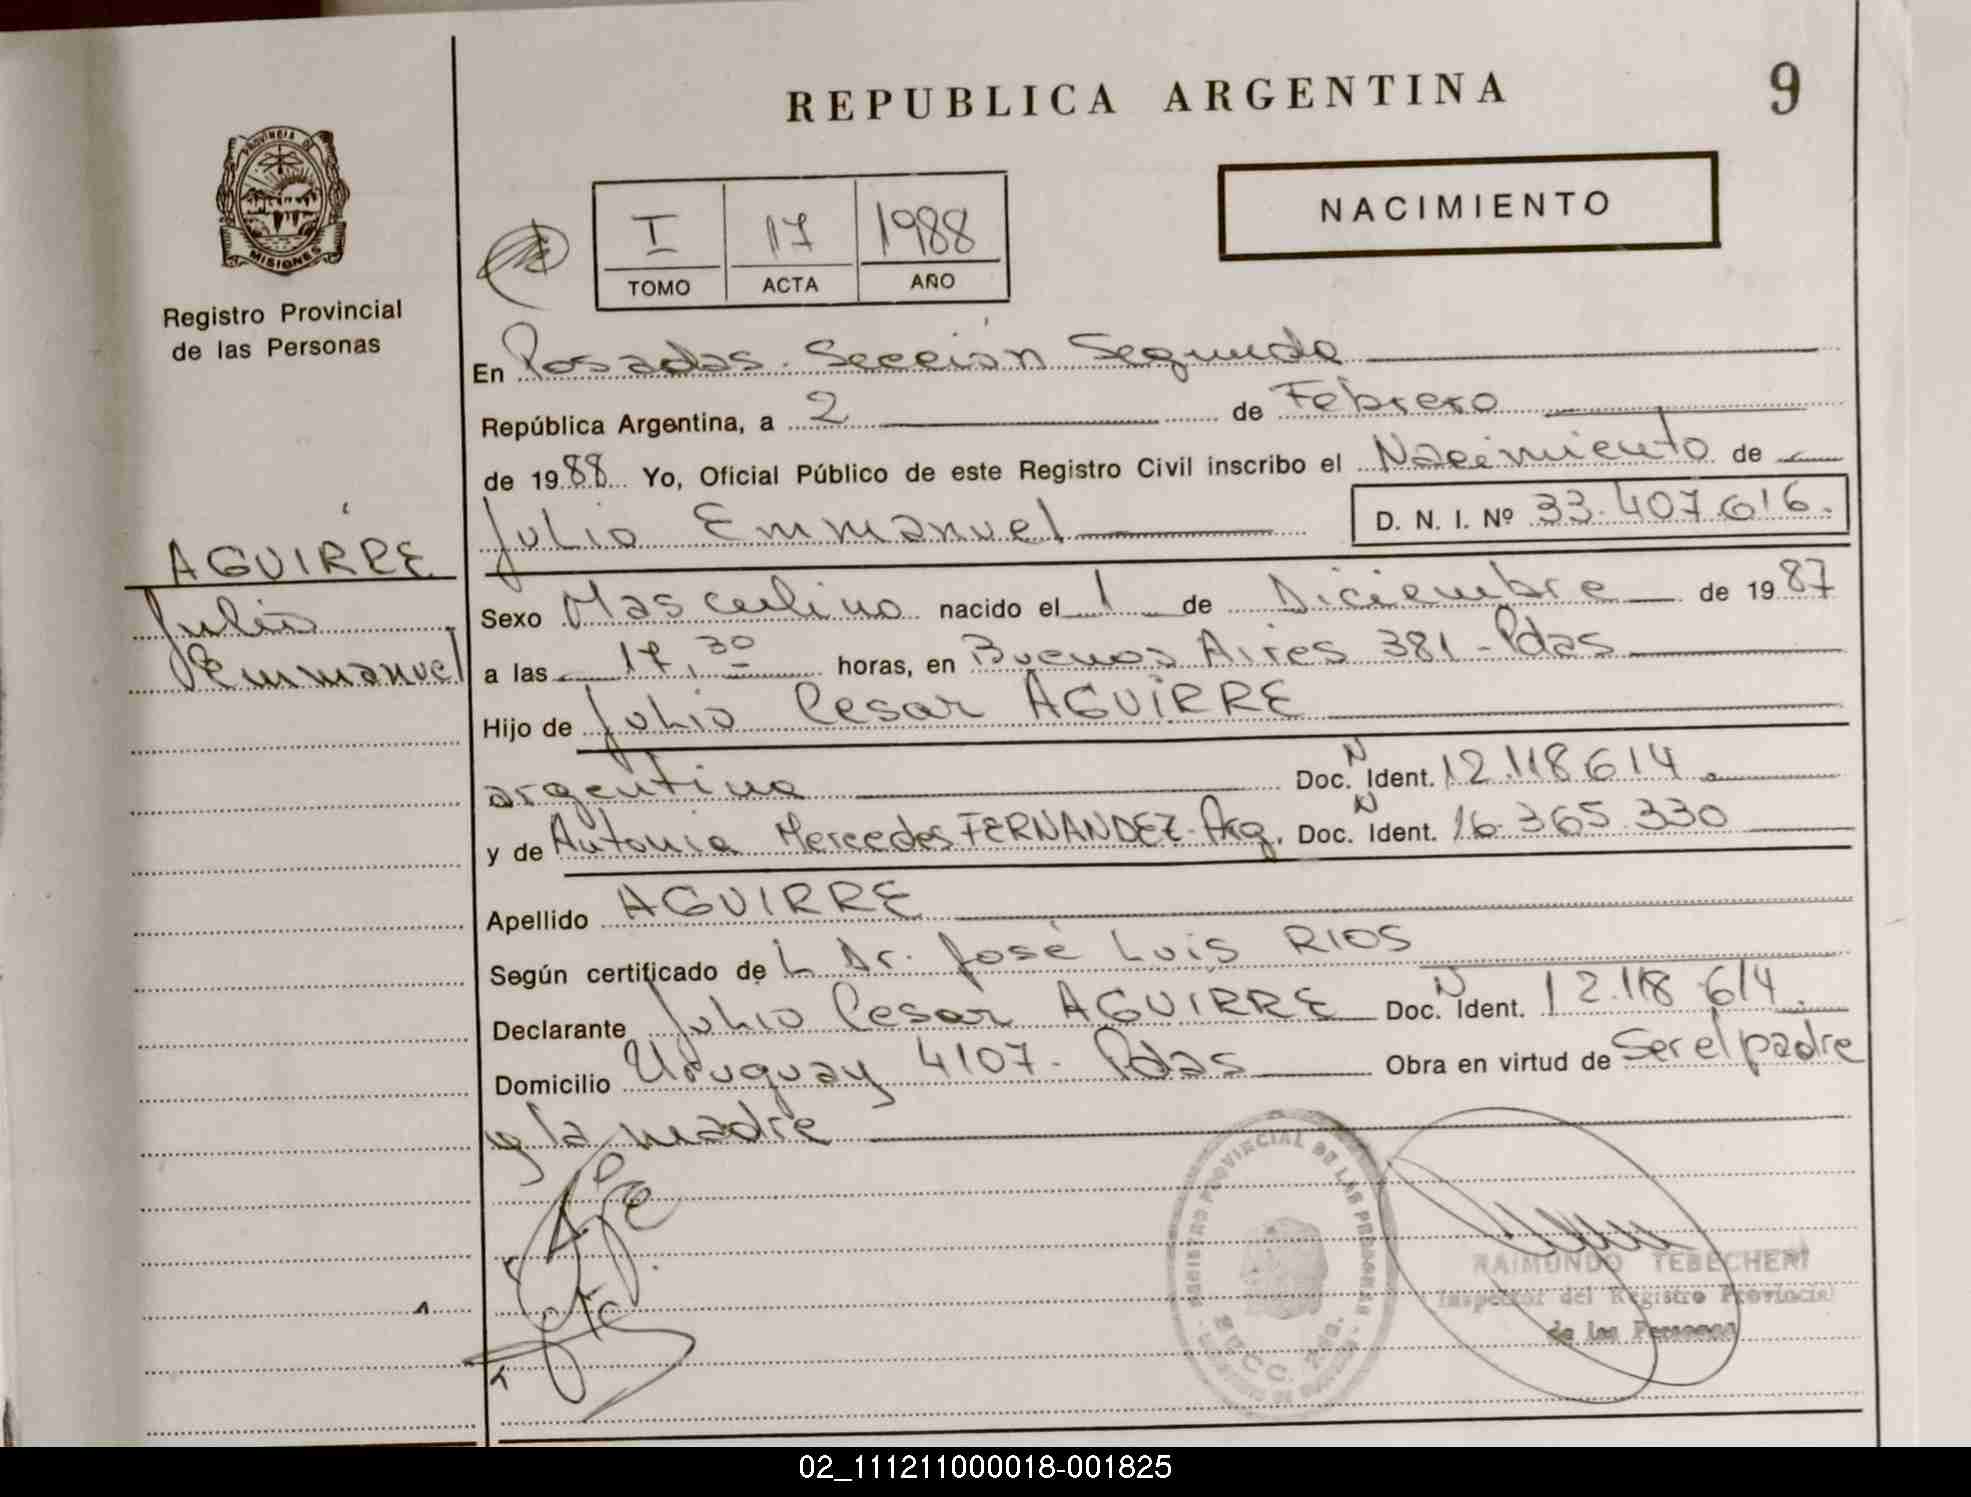 REPUBLICA ARGENTINA
9
PROVINCIA DE
MISIONES
Registro Provincial
de las Personas
NACIMIENTO
I 17 1988
TOMO ACTA AÑO
En Posadas. Sección Segunda
República Argentina, a 2 de Febrero
de 1988 Yo, Oficial Público de este Registro Civil inscribo el Nacimiento de
Julio Emmanuel D. N. I. Nº 33.407.616.
AGUIRRE
Julio
Emmanuel
Sexo Masculino nacido el 1 de Diciembre de 1987
a las 17,30 horas, en Buenos Aires 381 - Pdas
Hijo de Julio Cesar AGUIRRE
argentino Doc. N Ident. 12.118.614.
y de Antonia Mercedes FERNANDEZ - Arg. Doc. N Ident. 16.365.330
Apellido AGUIRRE
Según certificado de L Dr. José Luis RIOS
Declarante Julio Cesar AGUIRRE Doc. N Ident. 12.118.614.
Domicilio Uruguay 4107 - Pdas Obra en virtud de Ser el padre
y la madre
REGISTRO PROVINCIAL DE LAS PERSONAS
SUCC. 2da.
RAIMUNDO TEBECHERI
Inspector del Registro Provincial
de las Personas
02_111211000018-001825